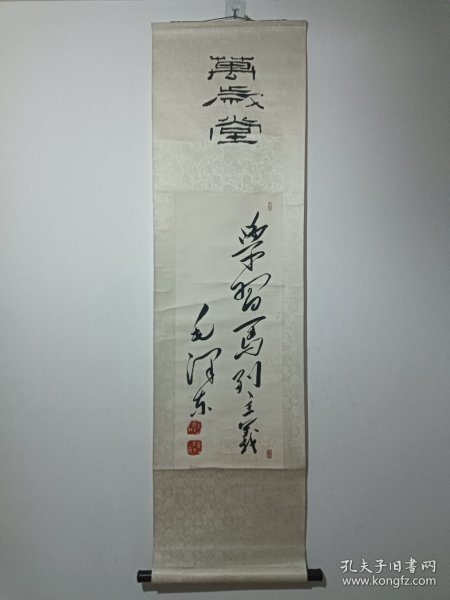 萬歲堂
學習馬列主義
毛澤东
孔夫子旧书网
www.kongfz.com